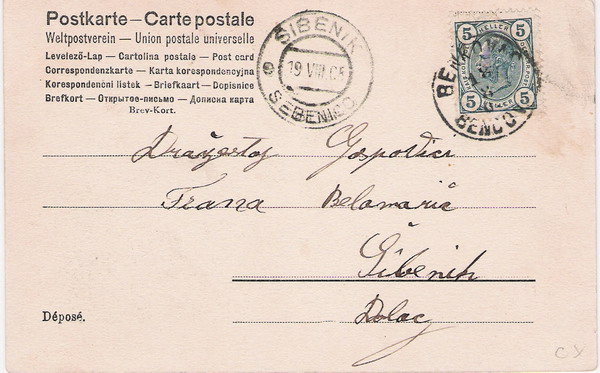 Postkarte — Carte postale
Weltpostverein — Union postale universelle
Levelező-Lap — Cartolina postale — Post card
Correspondenzkarte — Karta korespondencyjna
Korespondenčni listek — Briefkaart — Dopisnice
Brefkort — Открытое-письмо — Дописна карта
Brev-Kort.
ŠIBENIK
19 VIII 05
SEBENICO
5 HELLER 5
5 HELLER 5
BENKOVAC
BENCOV
Dražestoj Gospođici
Frana Belamarić
Šibenik
Dolac
Déposé.
CX